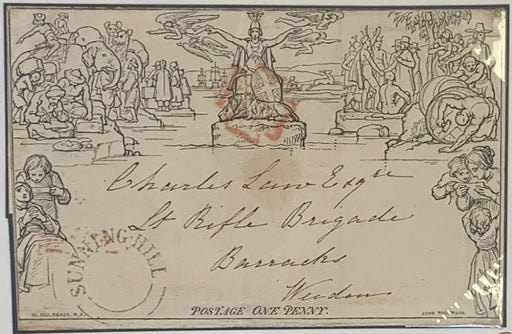 Charles Law Esqre
Lt Rifle Brigade
Barracks
Weedon
SUNNING-HILL
W. MULREADY. R.A.
POSTAGE ONE PENNY.
JOHN THOMPSON.